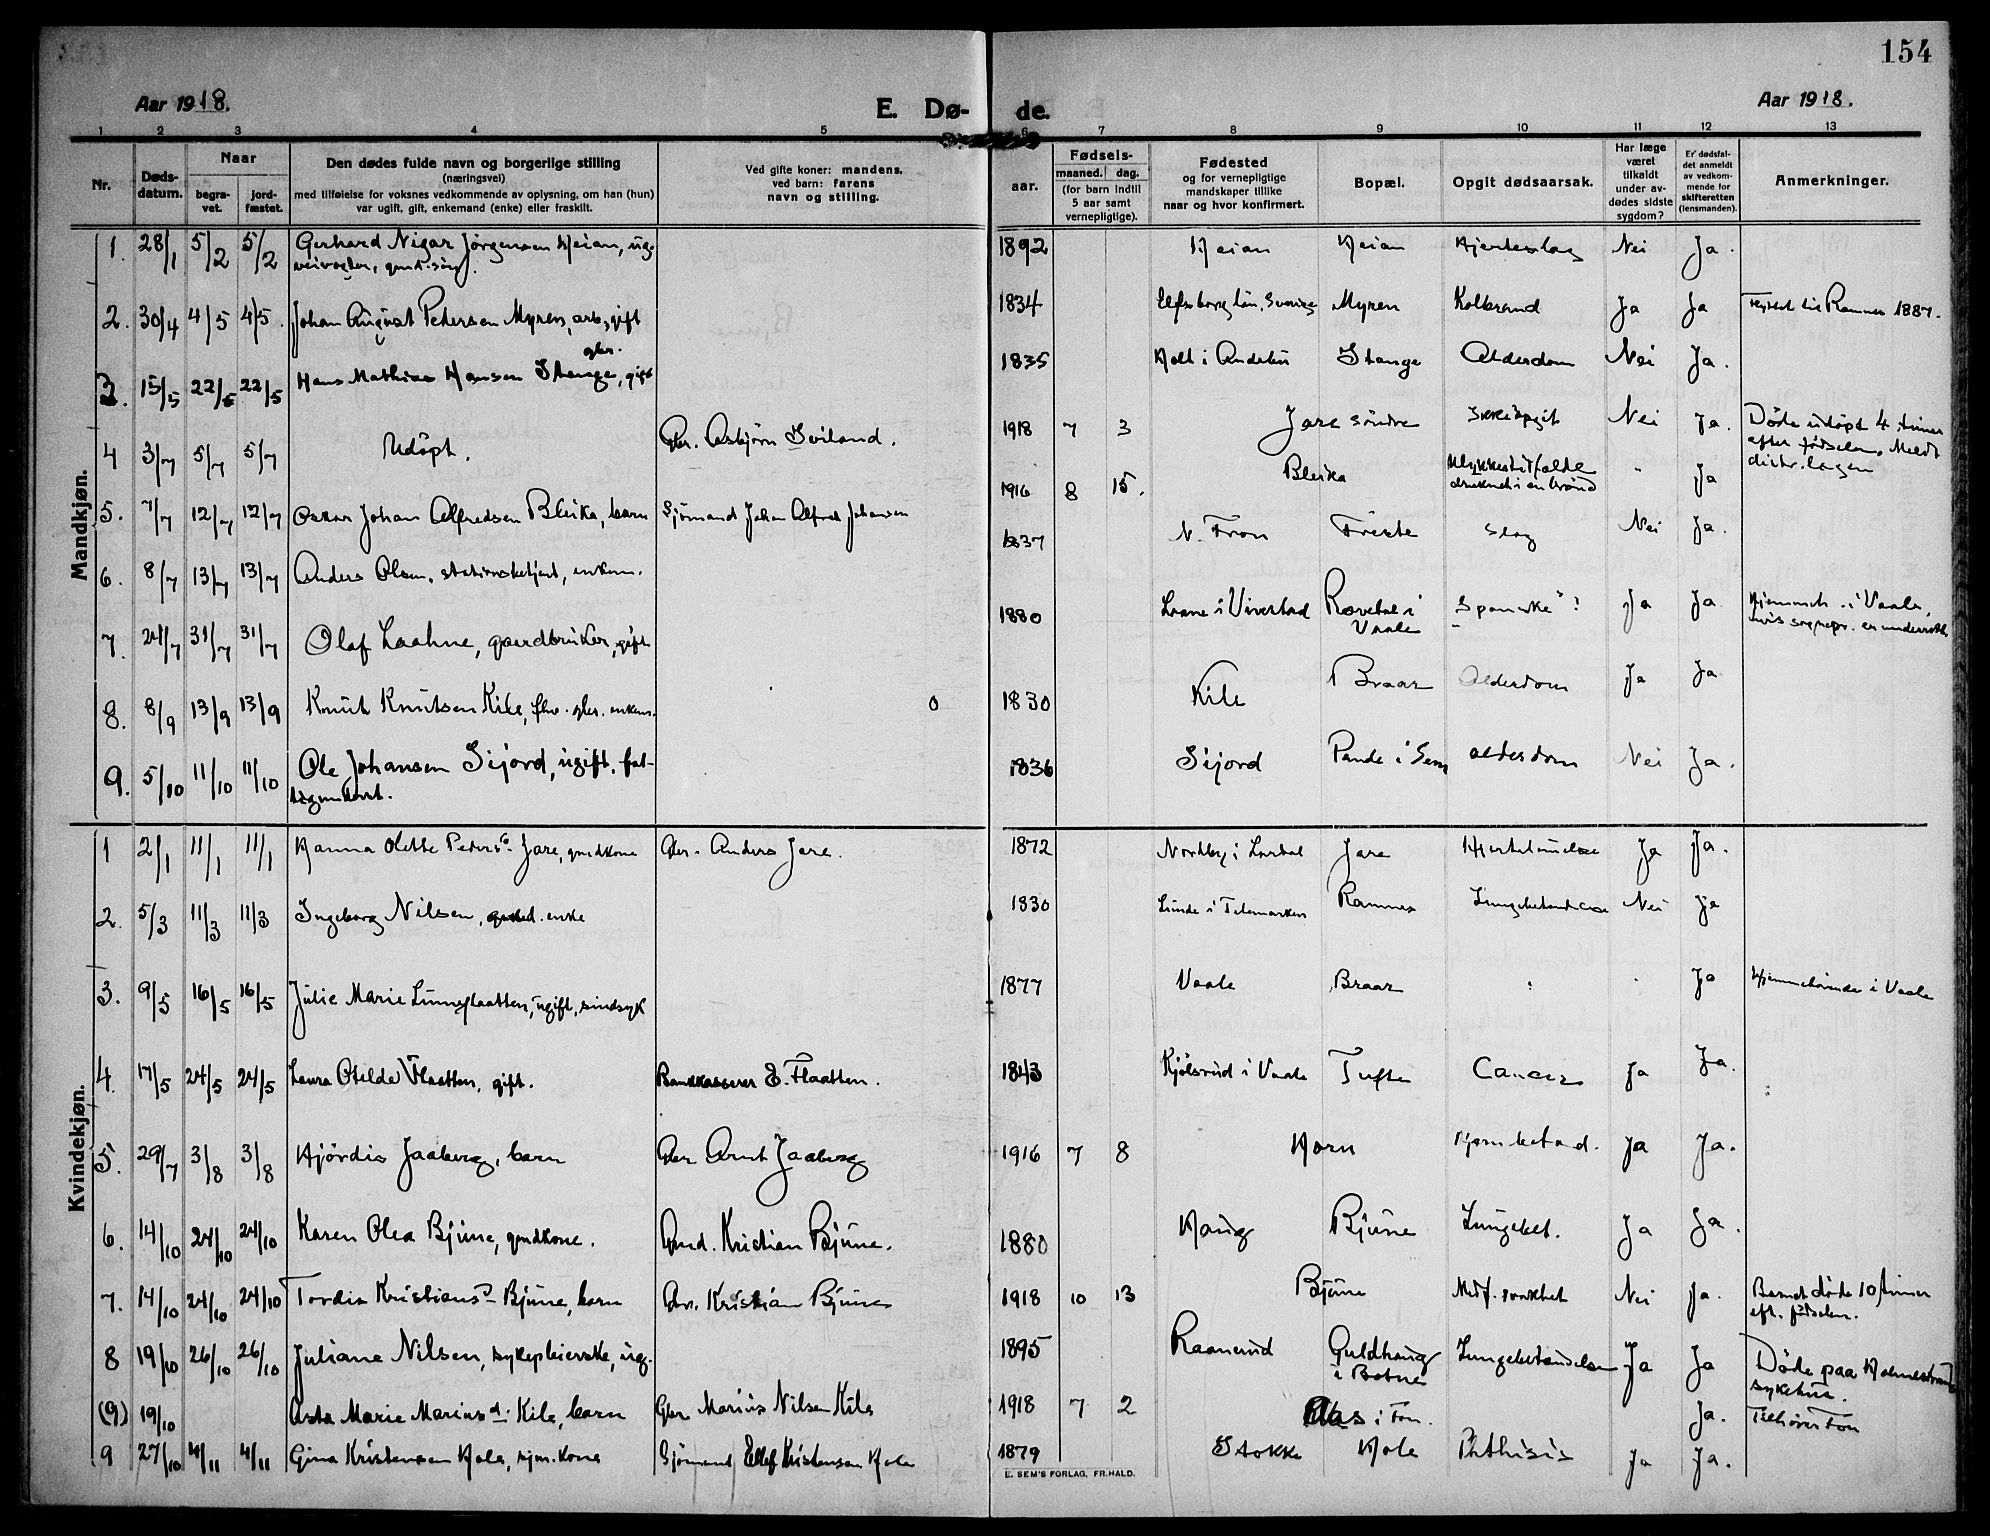 154
Aar 1918. E. Dø- de. Aar 1918.
1 2 3 4 5 6 7 8 9 10 11 12 13
Nr. Døds-datum. Naar begra-vet. jord-fæstet. Den dødes fulde navn og borgerlige stilling (næringsvei) med tilføielse for voksnes vedkommende av oplysning, om han (hun) var ugift, gift, enkemand (enke) eller fraskilt. Ved gifte koner: mandens, ved barn: farens navn og stilling. aar. Fødsels- maaned. dag. (for barn indtil 5 aar samt vernepligtige). Fødested og for vernepligtige mandskaper tillike naar og hvor konfirmert. Bopæl. Opgit dødsaarsak. Har læge været tilkaldt under av-dødes sidste sygdom? Er dødsfal-det anmeldt av vedkom-mende for skifteretten (lensmanden). Anmerkninger.
Mandkjøn.
1. 28/1 5/2 5/2 Gerhard Nigar Jørgensen Heian, ug. 1892 Heian Heian Hjerteslag Nei Ja.
2. 30/4 4/5 4/5 Johan August Petersen Myren, arb., gift 1834 Elfsborg län, Sverige Myren Koldbrand Ja Ja Flyttet til Ramnes 1887.
3. 15/5 22/5 22/5 Hans Mathias Hansen Stange, gbr. gift 1835 Holt i Andebu Stange Alderdom Nei Ja.
4 3/7 5/7 5/7 Udöpt. Gbr. Asbjørn Sviland. 1918 7 3 Jare söndre Ikke opgit Nei Ja. Döde udöpt 4 timer
efter födselen. Meldt
distr. lægen
5. 7/7 12/7 12/7 Oskar Johan Alfredsen Bleika, barn Sjömand Johan Alfred Johansen 1916 8 15. Bleika Ulykkestilfælde
druknet i en brønd " Ja
6. 8/7 13/7 13/7 Anders Olsen, stationsbetjent, enkem. 1837 N. Fron Freste Slag Nei Ja.
7. 24/7 31/7 31/7 Olaf Laahne, gaardbruker, gift 1880 Laane i Vivestad Rævetal i
Vaale "Spanske"! Ja Ja. Hjemmeh. i Vaale,
hvis sognepr. er underrettet
8. 8/9 13/9 13/9 Knut Knutsen Kile, fhv. gbr. enkem. 0 1830 Kile Braar Alderdom Ja Ja
9. 5/10 11/10 11/10 Ole Johansen Sijord, ugift, fat-
tigunderst. 1836 Sijord Pande i Sem Alderdom Nei Ja.
Kvindekjøn.
1 2/1 11/1 11/1 Hanna Olette Peders. Jare, gmdkone Gbr. Anders Jare. 1872 Nordby i Lardal Jare Ja Ja.
2. 5/3 11/3 11/3 Ingeborg Nilsen, enke 1830 Lunde i Telemarken Ramnes Lungebetændelse Nei Ja
3. 9/5 16/5 16/5 Julie Marie Linneflaatten, ugift, sindsyk 1877 Vaale Braar " " Ja Hjemmehörende i Vaale
4. 17/5 24/5 24/5 Laura Otilde Flaatten, gift. Bankkasserer E. Flaatten. 1843 Kjölsrud i Vaale Tufte Cancer Ja Ja.
5. 29/7 3/8 3/8 Hjördis Jaaberg, barn Gbr Arnt Jaaberg 1916 7 8 Horn Hjernebetænd. Ja Ja.
6. 14/10 24/10 24/10 Karen Olea Bjune, gmdkone. Gmd. Kristian Bjune. 1880 Haug Bjune Lungebet. Ja Ja.
7. 14/10 24/10 24/10 Tordis Kristiansd. Bjune, barn Gbr. Kristian Bjune 1918 10 13 Bjune Medf. svakhet Nei Ja. Barnet döde 10 timer
eft. födselen.
8 19/10 26/10 26/10 Juliane Nilsen, sykepleierske, ug. 1895 Raanerud Guldhaug
i Botne Lungebetændelse Ja Ja Döde paa Holmestrand
sykehus.
(9) 19/10 Asta Marie Mariusd. Kile, barn Gbr Marius Nilsen Kile 1918 7 2 Aas i Fon. Ja. Tilhörer Fon
9 27/10 4/11 4/11 Gina Kristensen Hole, sjm. kone Sjömand Ellef Kristensen Hole 1879 Stokke Hole Phthisis Ja Ja.
E. SEM'S FORLAG, FR.HALD.